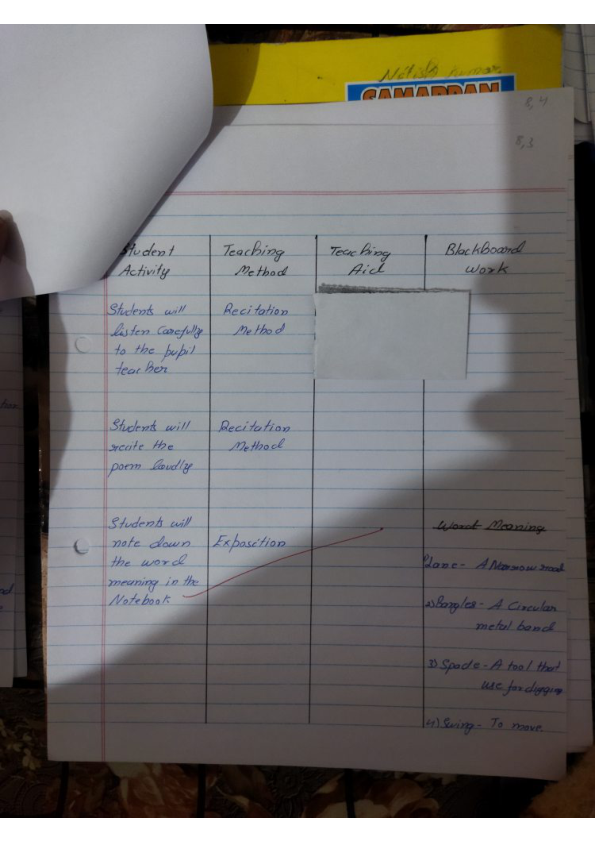 Nitish kumar
SAMARPAN
8,4
8,3
Student Activity
Teaching Method
Teaching Aid
Blackboard Work
Students will
listen carefully
to the pupil
teacher
Recitation
Method
Students will
recite the
poem loudly
Recitation
Method
Students will
note down
the word
meaning in the
Notebook
Exposition
Word Meaning
Lane - A Narrow road
2) Bangles - A Circular
metal band
3) Spade - A tool that
use for digging
4) Swing - To move